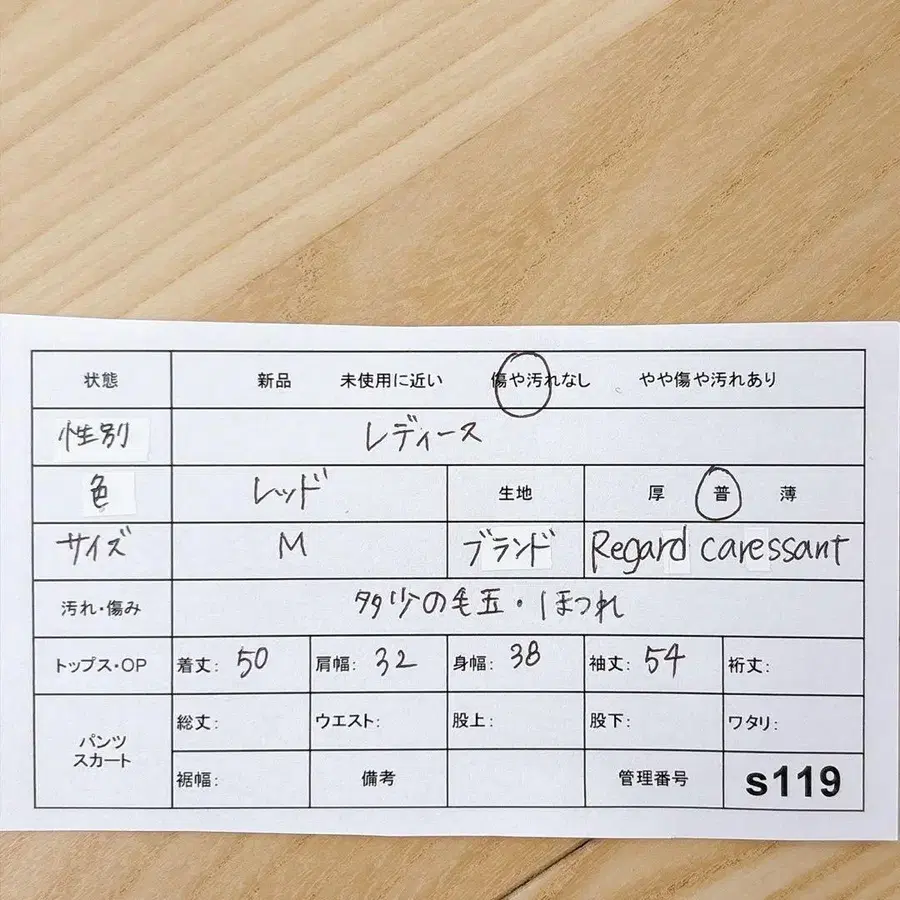 状態 新品 未使用に近い 傷や汚れなし やや傷や汚れあり
性別 レディース
色 レッド 生地 厚 普 薄
サイズ M ブランド Regard caressant
汚れ・傷み 多少の毛玉・ほつれ
トップス・OP 着丈: 50 肩幅: 32 身幅: 38 袖丈: 54 裄丈:
パンツ
スカート
総丈: ウエスト: 股上: 股下: ワタリ:
裾幅: 備考 管理番号 s119